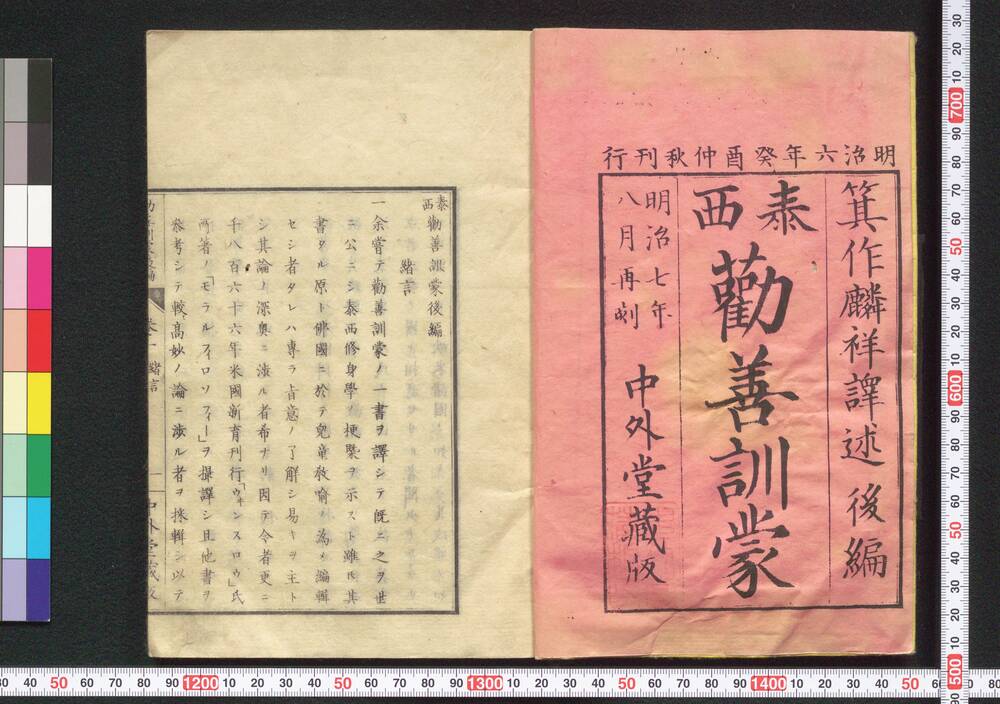 明治六年癸酉仲秋刊行
箕作麟祥譯述 後編
泰西
勸善訓蒙
明治七年
八月再刻
中外堂藏版
泰西勸善訓蒙後編
緒言
一余嘗テ勸善訓蒙ノ一書ヲ譯シテ既ニ之ヲ世
ニ公ニシ泰西修身學ノ梗槩ヲ示スト雖𪜈其
書タル原ト佛國ニ於テ兒童教喩ノ爲メ編輯
セシ者タレハ專ラ旨意ノ了解シ易キヲ主ト
シ其論ノ深奥ニ渉ル者希ナリ因テ今者更ニ
千八百六十六年米國新育刊行「ウ井ンスロウ」氏
所著ノ「モラルフィロソフィー」ヲ撮譯シ且他書ヲ
參考シテ較高妙ノ論ニ渉ル者ヲ採輯シ以テ
卷一 緒言
一
中外堂藏版